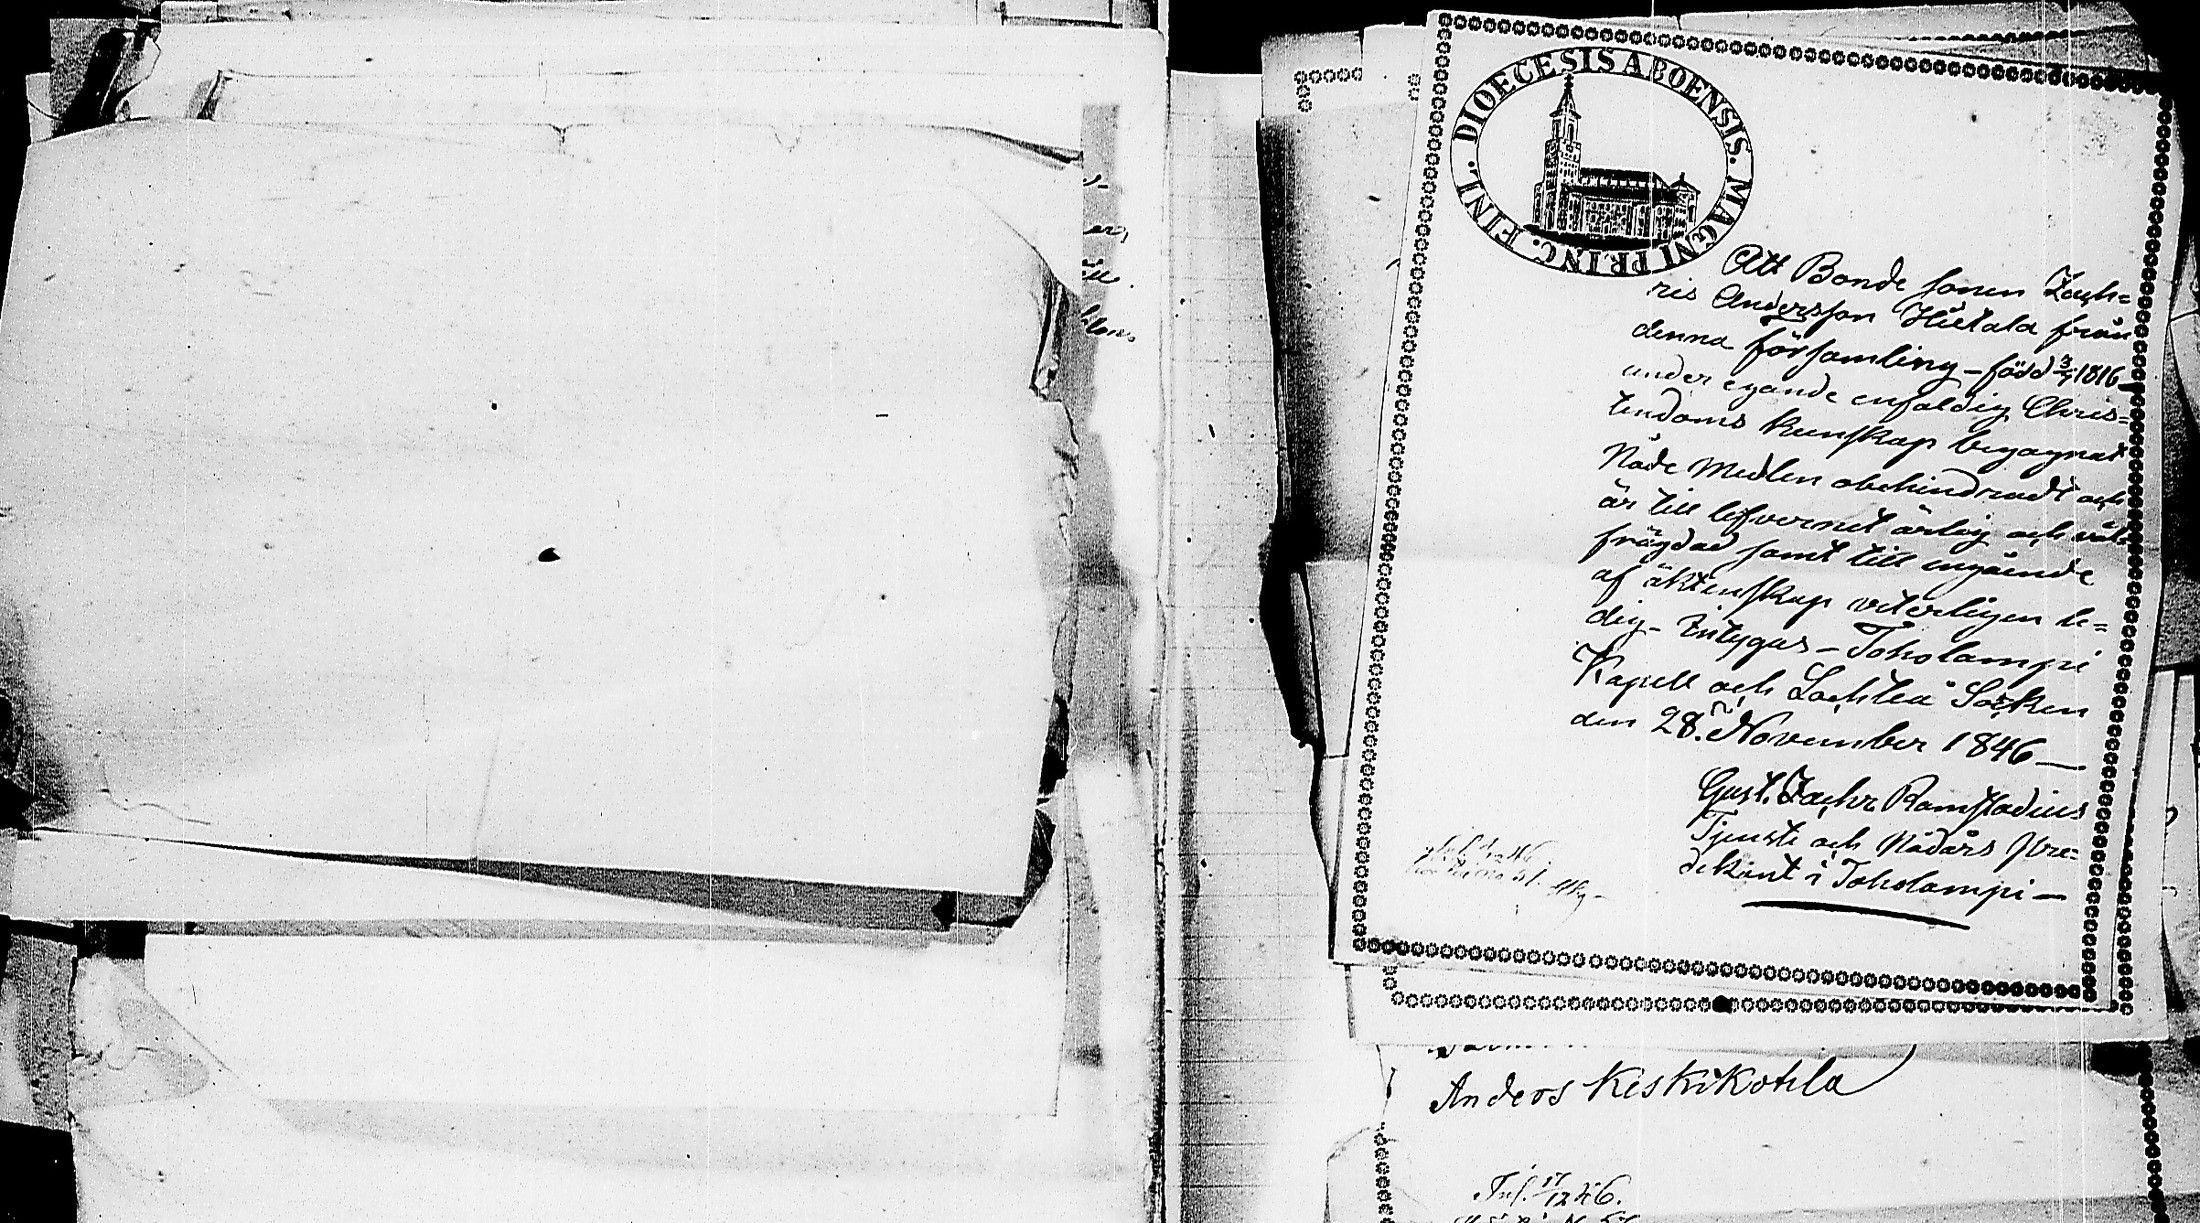 DIOECESIS ABOENSIS. MAGNI PRINC. FINL.
Att Bonde sonen Zach=
ris Andersson Hietala från
denna församling - född 3/7 1816
under egande enfaldig Chris=
tendoms kunskap begagnat
Nåde Medlen obehindradt och
är till lefvernet ärlig och väl
frägdad samt till ingående
af äktenskap viterligen le=
dig - Intygas - Toholampi
Kapell och Lochteå Socken
den 28. November 1846 —
Gust. Zachr Ramstadius
Tjenste och Nådårs Pre=
dikant i Toholampi —
Anders Keskikotila
Inl. 17/12 46.